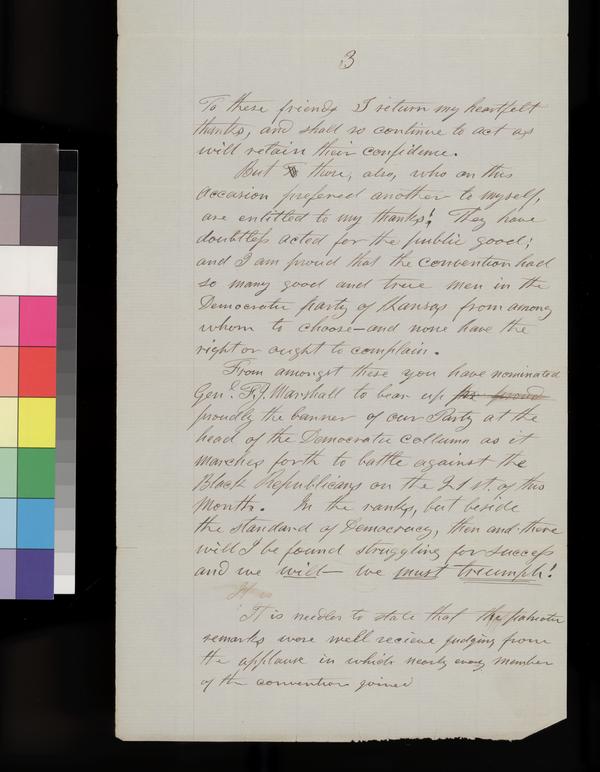 3
To these friends I return my heartfelt
thanks, and shall so continue to act as
will retain their confidence.
But those, also, who on this
occasion prefered another to myself,
are entitled to my thanks! They have
doubtless acted for the public good;
and I am proud that the convention had
so many good and true men in the
Democratic party of Kansas from among
whom to choose—and none have the
right or ought to complain.
From amongst these you have nominated
Genl. F. J. Marshall to bear up
proudly the banner of our Party at the
head of the Democratic collumn as it
marches forth to battle against the
Black Republicans on the 21st. of this
month. In the ranks, but beside
the standard of Democracy, then and there
will I be found struggling for success
and we will— we must triumph!
It is
It is needles to state that the patriotic
remarks were well recieve judging from
the applause in which nearly every member
of the convention joined